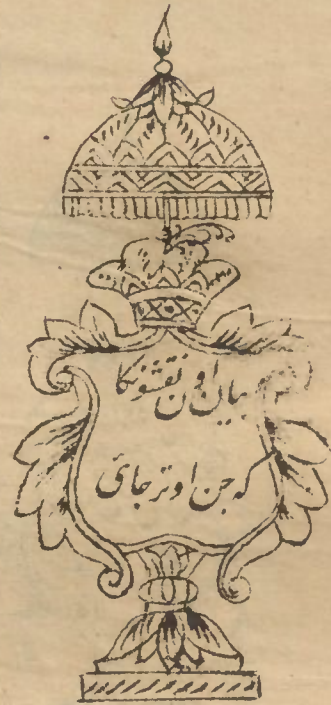 بیان اون نقشونکا
که جن اوتر جائی